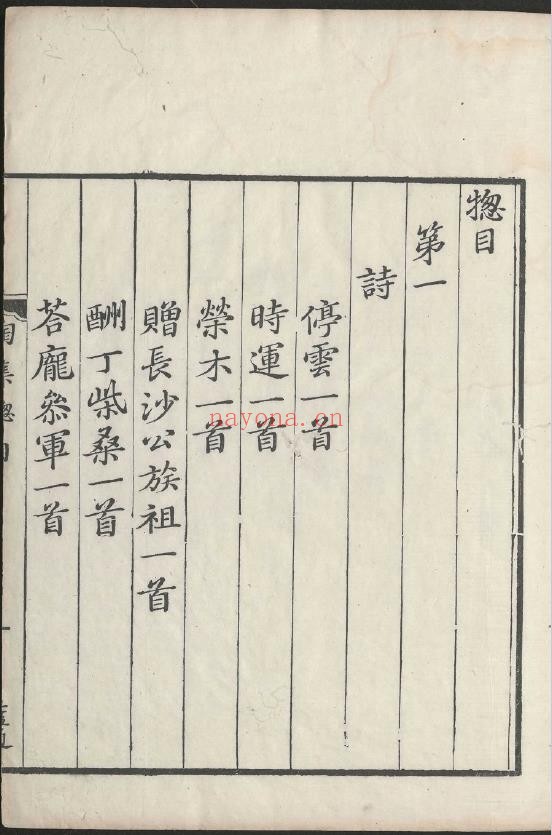 揔目
第一
詩
停雲一首
時運一首
榮木一首
贈長沙公族祖一首
酬丁柴桑一首
荅龐叅軍一首
陶集揔目
一
nayona.cn